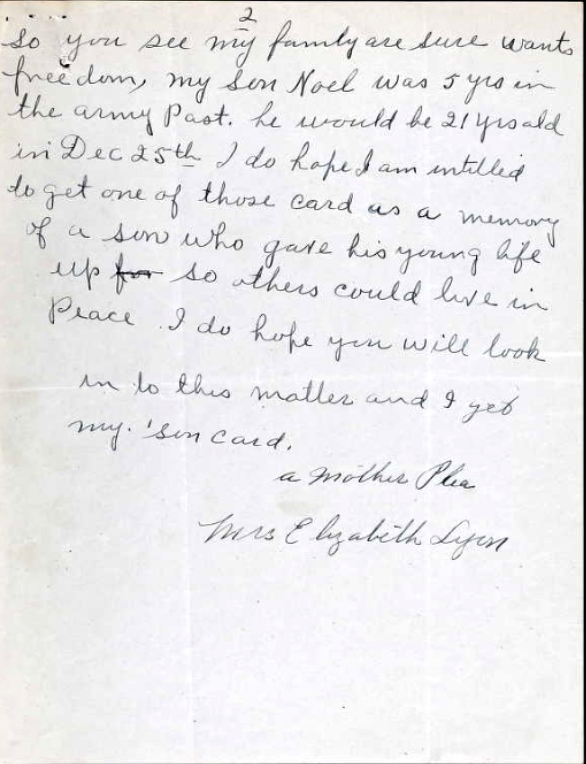 2
So you see my family are sure wants
freedom, my son Noel was 5 yrs in
the army Past. he would be 21 yrs old
in Dec 25th I do hope I am intilled
to get one of those card as a memory
of a son who gave his young life
up for so others could live in
Peace. I do hope you will look
in to this matter and I get
my. 'son card.
a Mother Plea
Mrs Elizabeth Lyon